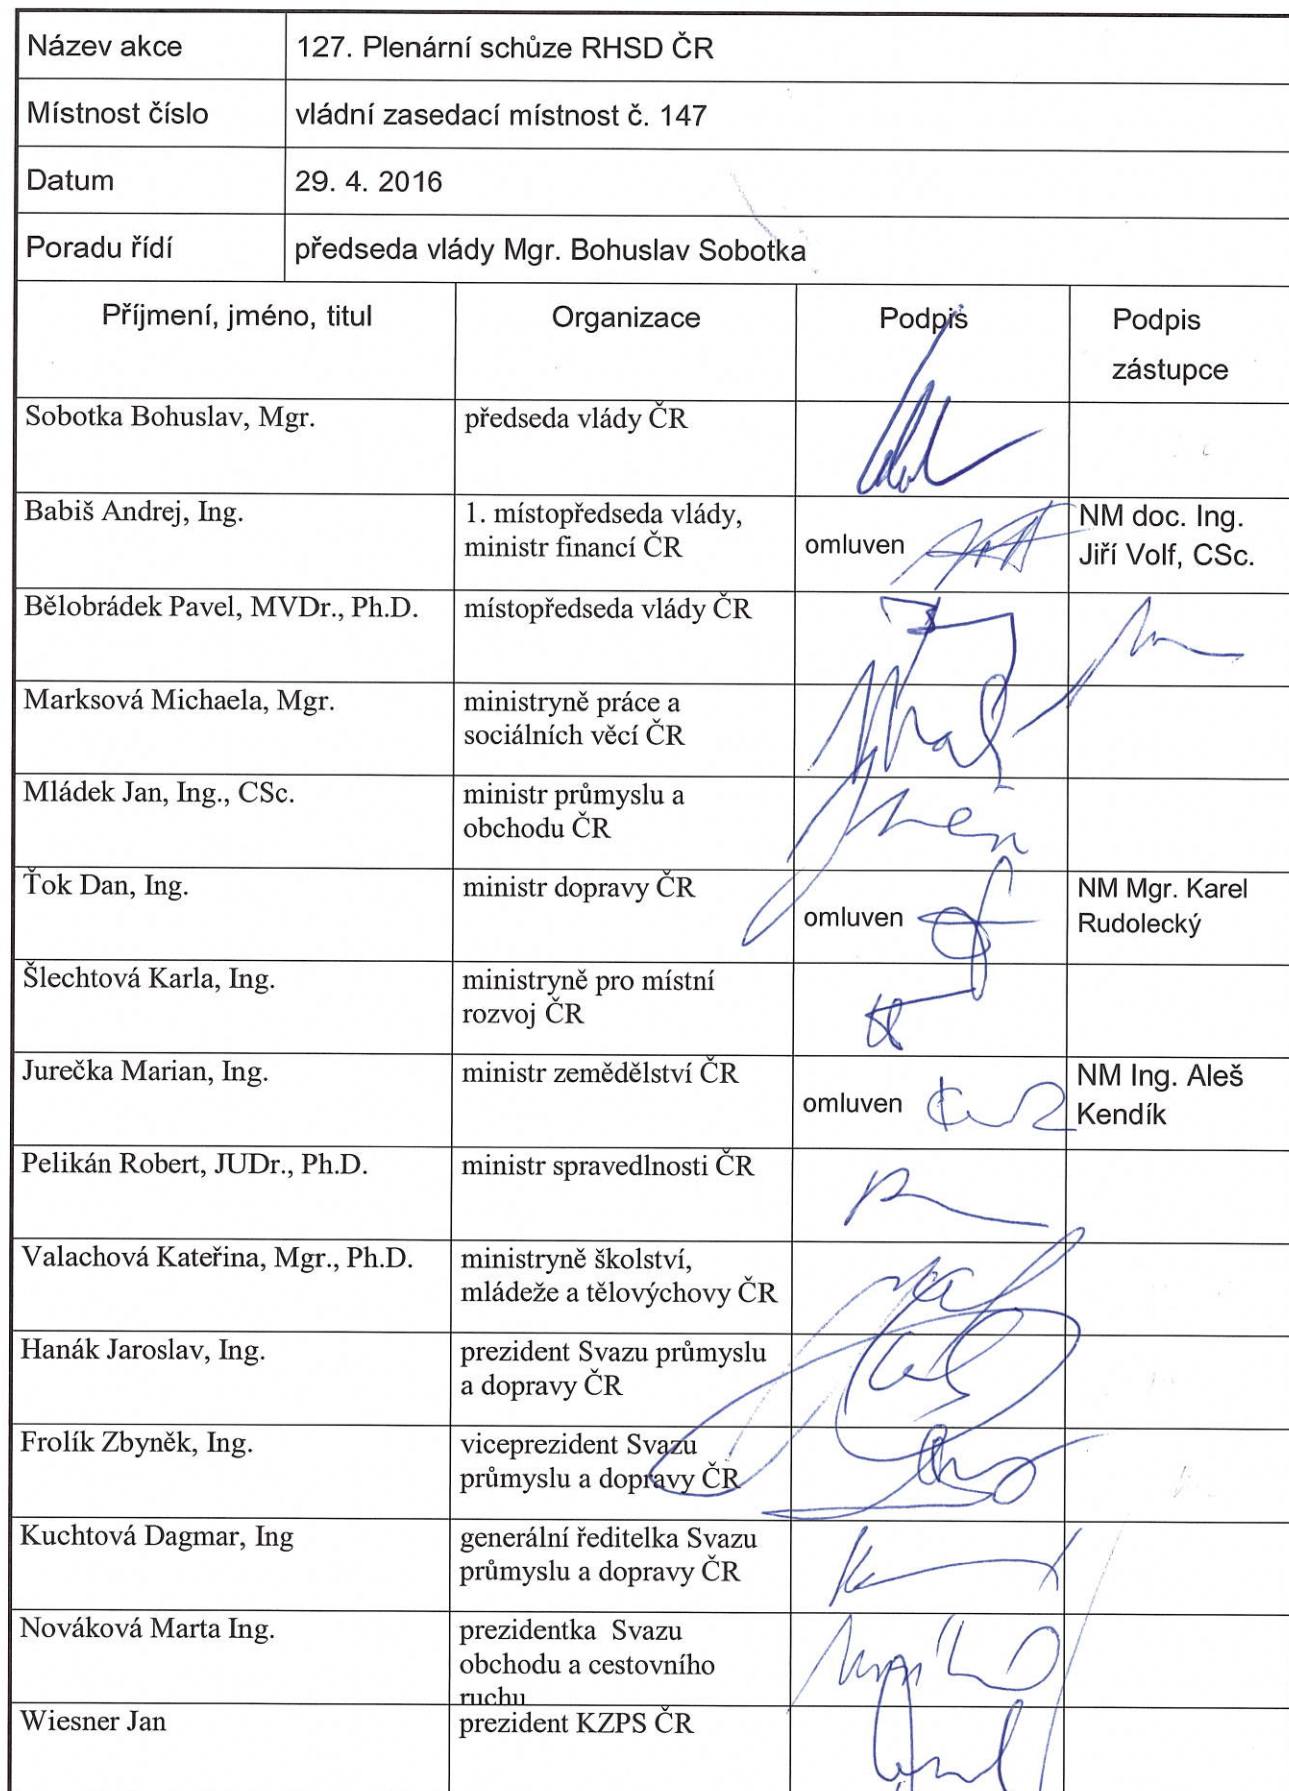 Název akce 127. Plenární schůze RHSD ČR
Místnost číslo vládní zasedací místnost č. 147
Datum 29. 4. 2016
Poradu řídí předseda vlády Mgr. Bohuslav Sobotka
Příjmení, jméno, titul Organizace Podpis Podpis
zástupce
Sobotka Bohuslav, Mgr. předseda vlády ČR
Babiš Andrej, Ing. 1. místopředseda vlády,
ministr financí ČR
omluven
NM doc. Ing.
Jiří Volf, CSc.
Bělobrádek Pavel, MVDr., Ph.D. místopředseda vlády ČR
Marksová Michaela, Mgr. ministryně práce a
sociálních věcí ČR
Mládek Jan, Ing., CSc. ministr průmyslu a
obchodu ČR
Ťok Dan, Ing. ministr dopravy ČR
omluven
NM Mgr. Karel
Rudolecký
Šlechtová Karla, Ing. ministryně pro místní
rozvoj ČR
Jurečka Marian, Ing. ministr zemědělství ČR
omluven
NM Ing. Aleš
Kendík
Pelikán Robert, JUDr., Ph.D. ministr spravedlnosti ČR
Valachová Kateřina, Mgr., Ph.D. ministryně školství,
mládeže a tělovýchovy ČR
Hanák Jaroslav, Ing. prezident Svazu průmyslu
a dopravy ČR
Frolík Zbyněk, Ing. viceprezident Svazu
průmyslu a dopravy ČR
Kuchtová Dagmar, Ing generální ředitelka Svazu
průmyslu a dopravy ČR
Nováková Marta Ing. prezidentka Svazu
obchodu a cestovního
ruchu
Wiesner Jan prezident KZPS ČR